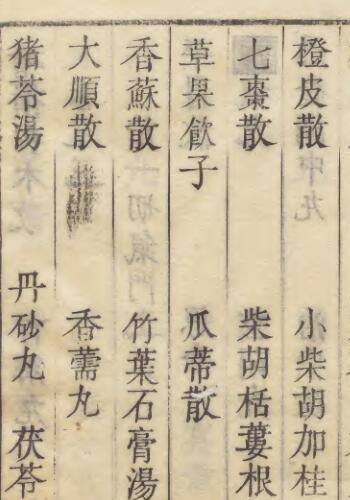 橙皮散 小柴胡加桂
七棗散 柴胡栝蔞根
草果飲子 瓜蒂散
香蘇散 竹葉石膏湯
大順散 香薷丸
猪苓湯 丹砂丸 茯苓